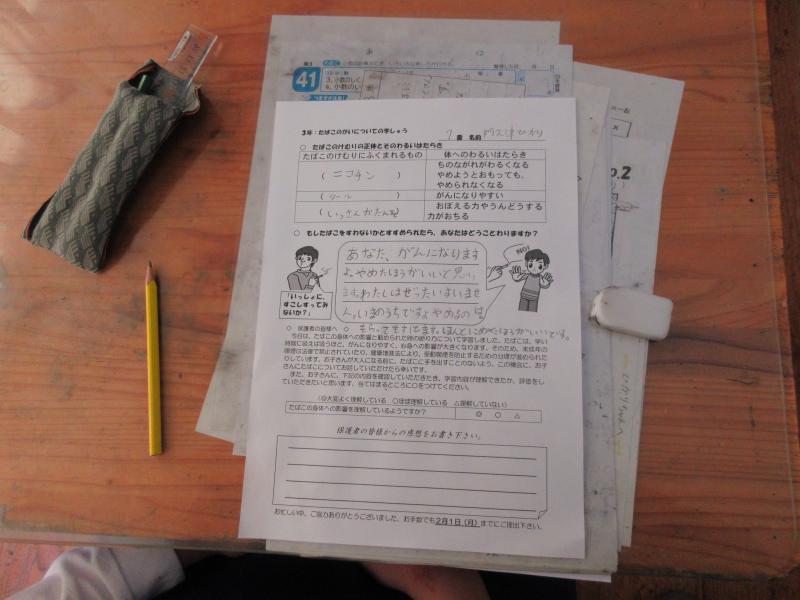 41
3年：たばこのがいについての学しゅう
名前
○ たばこのけむりの正体とそのわるいはたらき
たばこのけむりにふくまれるもの 体へのわるいはたらき
（ニコチン） ちのながれがわるくなる
やめようとおもっても、
やめられなくなる
（タール） がんになりやすい
（いっさんかたんそ） おぼえる力やうんどうする
力がおちる
○ もしたばこをすわないかとすすめられたら、あなたはどうことわりますか？
あなた、がんになります
よ。やめたほうがいいと思い
ます。わたしはぜったいすいませ
ん。いまのうちですよやめるのは
「いっしょに、
すこしすってみ
ないか？」
NO!
○ 保護者の皆様へ ○
今日は、たばこの身体への影響と勧められた時の断り方について学習しました。たばこは、早い
時期に吸えば吸うほど、がんになりやすく、心身への影響が大きくなります。そのため、未成年の
喫煙は法律で禁止されていたり、健康増進法により、受動喫煙を防止するための分煙が進められた
りしています。お子さんが大人になる前に、たばこに手を出すことのないよう、この機会に、お子
さんにたばこについてお話していただけたら幸いです。
また、お子さんに、下記の内容を確認していただきたき、学習内容が理解できたか、評価をし
ていただきたいと思います。当てはまるところに○をつけてください。
（◎大変よく理解している ○ほぼ理解している △理解していない）
たばこの身体への影響を理解しているようですか？ ◎ ○ △
保護者の皆様からの感想をお書き下さい。
お忙しい中、ご協力ありがとうございました。お手数でも2月1日（月）までにご提出下さい。